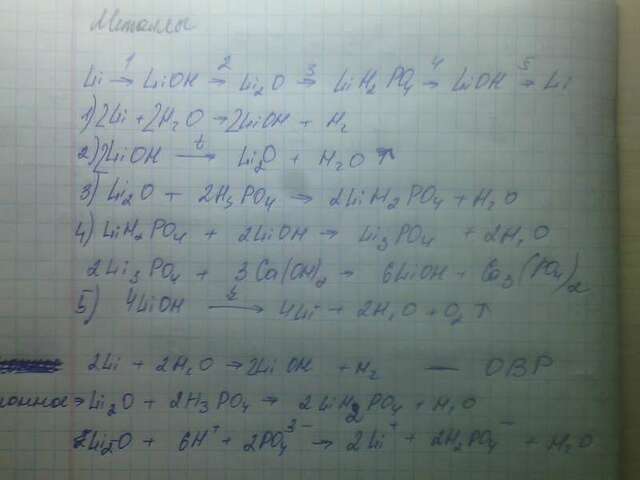 Металлы
Li →¹ LiOH →² Li₂O →³ LiH₂PO₄ →⁴ LiOH →⁵ Li
1) 2Li + 2H₂O → 2LiOH + H₂
2) 2LiOH →ᵗ Li₂O + H₂O ↑
3) Li₂O + 2H₃PO₄ → 2LiH₂PO₄ + H₂O
4) LiH₂PO₄ + 2LiOH → Li₃PO₄ + 2H₂O
2Li₃PO₄ + 3Ca(OH)₂ → 6LiOH + Ca₃(PO₄)₂
5) 4LiOH →ᵗ 4Li + 2H₂O + O₂ ↑
2Li + 2H₂O → 2LiOH + H₂ — ОВР
Li₂O + 2H₃PO₄ → 2LiH₂PO₄ + H₂O
Li₂O + 6H⁺ + 2PO₄³⁻ → 2Li⁺ + 2H₂PO₄⁻ + H₂O